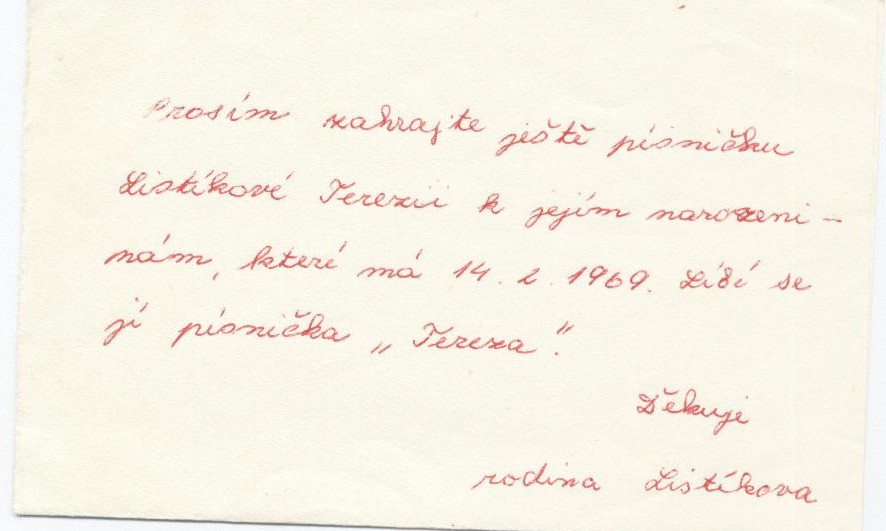 Prosím zahrajte ještě písničku
Listíkové Terezii k jejím narozeni-
nám, které má 14. 2. 1969. Líbí se
jí písnička „Tereza".
Děkuje
rodina Listíkova